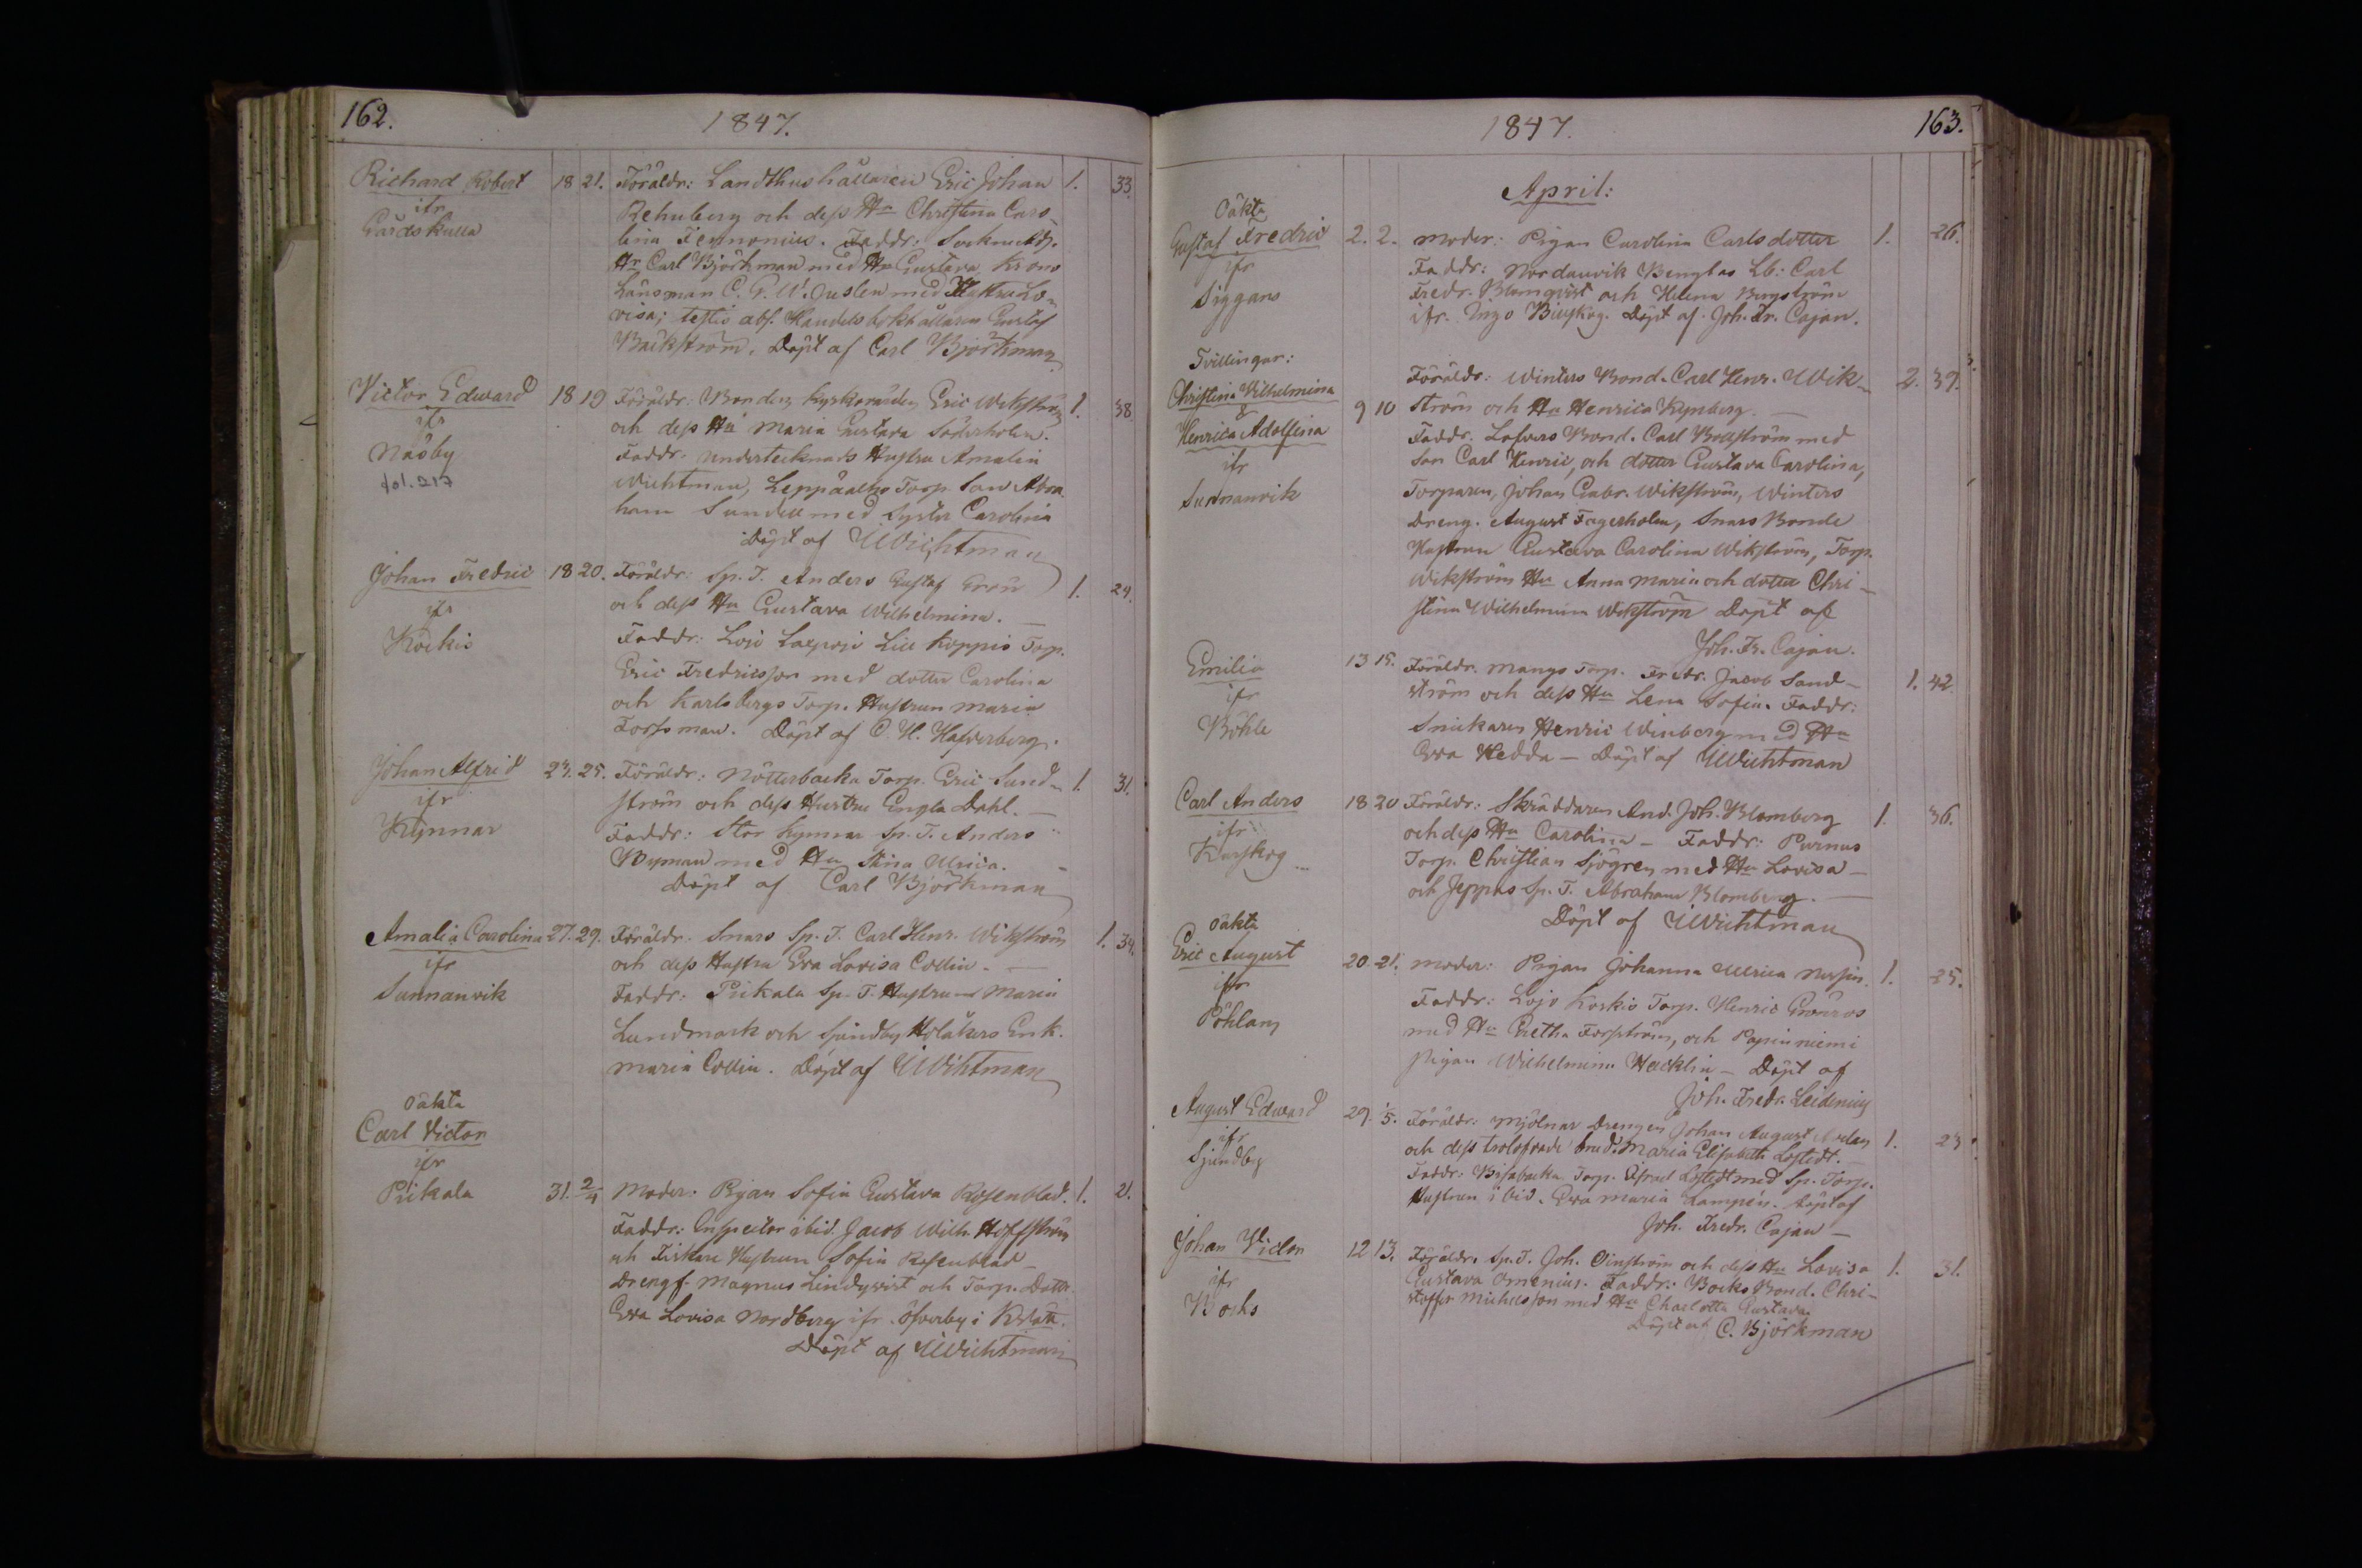 162.
1847.
Richard Robert 18 21. Föräldr: Landthushållaren Eric Johan 1. 33.
ifr
Gårdskulla
Rehnberg och dess Hu Christina Caro-
lina Fennonius. Faddr: Sockne Adj.
Hr Carl Björkman med Hu Gustava Krono
Länsman C. G. W. Juslen med Hustru Lo-
visa; testis abs. Handels bokhållaren Gustaf
Bäckström. Döpt af Carl Björkman
Victor Edward 18 19 Föräldr: Bonden, Kyrkovärden Eric Wikström 1. 38.
ifr
Näsby
fol. 217
och dess Hu Maria Gustava Söderholm.
Faddr: undertecknads Hustru Amalia
Wichtman, Leppäaltos Torp. Son Abra
ham Sundell med syster Carolina
Döpt af Wichtman
Johan Fredric 18 20. Föräldr: Sp. T. Anders Gustaf Grön 1. 24.
ifr
Koskis
och dess Hu Gustava Wilhelmina.
Faddr: Lojo Lill Koppis Torp.
Eric Fredricsson med dotter Carolina
och Karlsbergs Torp. Hustrun Maria
Forssman. Döpt af C. H. Hafverberg.
Johan Alfrid 23. 25. Föräldr: Nötterbacka Torp. Eric Sund- 1. 31.
ifr
Kynnar
ström och dess Hustru Engla Dahl.
Faddr: Stor Kynnar Sp. T. Anders
Byman med Hu Stina Ulrica.
Döpt af Carl Björkman
Amalia Carolina 27. 29. Föräldr: Snars Sp. T. Carl Henr. Wikström 1. 34.
ifr
Sunnanvik
och dess Hustru Eva Lovisa Collin.
Faddr: Pickala Sp. T. Hustrun Maria
Lundmark och Sjundby Holåkers Enk.
Maria Collin. Döpt af Wichtman
Oäkta
Carl Victor
ifr
Pickala 31. 2/4 Moder: Pigan Sofia Gustava Rosenblad. 1. 21.
Faddr: Inspector ibid. Jacob Wilh. Hoffström
och Fiskare Hustrun Sofia Rosenblad
Drengf. Magnus Lindqvist och Torp. Dottr
Eva Lovisa Nordberg ifr. Öfverby i
Döpt af Wichtman
1847.
163.
April:
Oäkta
Gustaf Fredric 2. 2. Moder: Pigan Carolina Carlsdotter 1. 26.
ifr
Siggans
Faddr: Nordanvik Bengtas Lb: Carl
Fredr. Blomqvist och Helena Bergström
ifr. Ingo Billskog. Döpt af Joh. Fr. Cajan.
Tvillingar:
Christina Wilhelmina
&
Henrica Adolfina
ifr
Sunnanvik
Föräldr: Winters Bond. Carl Henr. Wik- 2. 39.
9 10 ström och Hu Henrica Kynberg.
Faddr. Lofvers Bond. Carl Bollström med
son Carl Henric, och dotter Gustava Carolina,
Torparen, Johan Gabr. Wikström, Winters
Dreng. August Fagerholm, Snars Bonde
Hustrun Gustava Carolina Wikström, Torp.
Wikström Hu Anna Maria och dotter Chri-
stina Wilhelmina Wikström Döpt af
Joh. Fr. Cajan.
Emilia 13 15. Föräldr. Mangs Torp. Fredr. Jacob Sand- 1. 42.
ifr
Böhle
ström och dess Hu Lena Sofia. Faddr:
Snickaren Henric Winberg med Hu
Eva Hedda — Döpt af Wichtman
Carl Anders 18 20 Föräldr: Skräddaren And. Joh. Blomberg 1. 36.
ifr
Karskog
och dess Hu Carolina — Faddr: Purnus
Torp. Christian Sjögren med Hu Lovisa —
och Jeppas Sp. T. Abraham Blomberg.
Döpt af Wichtman
Oäkta
Eric August 20. 21. Moder: Pigan Johanna Ulrica 1. 25.
ifr
Pöhlans
Faddr: Lojo Koskis Torp. Henric Grönros
med Hu Gretha Forsström, och Papinniemi
Pigan Wilhelmina Hacklin — Döpt af
Joh. Fredr. Leidenius
August Edward 29. 1/5. Föräldr: Mjölnar Drengen Johan August 1. 23.
ifr
Sjundby
och dess trolofvade brud Maria Elisabeth Lostedt.
Faddr: Torp. Alfred Lostedt med Sp. Torp.
Hustrun ibid. Eva Maria Lampén. Döpt af
Joh. Fredr. Cajan —
Johan Victor 12 13. Föräldr. Sp. T. Joh. Oinström och dess Hu Lovisa 1. 31.
ifr
Bocks
Gustava Omenius. Faddr: Bocks Bond. Chri-
stoffer Michelsson med Hu Charlotta Gustava.
Döpt af C. Björkman